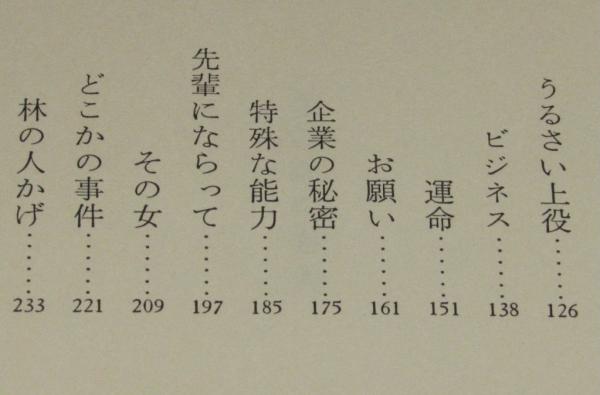 うるさい上役……126
ビジネス……138
運命……151
お願い……161
企業の秘密……175
特殊な能力……185
先輩にならって……197
その女……209
どこかの事件……221
林の人かげ……233